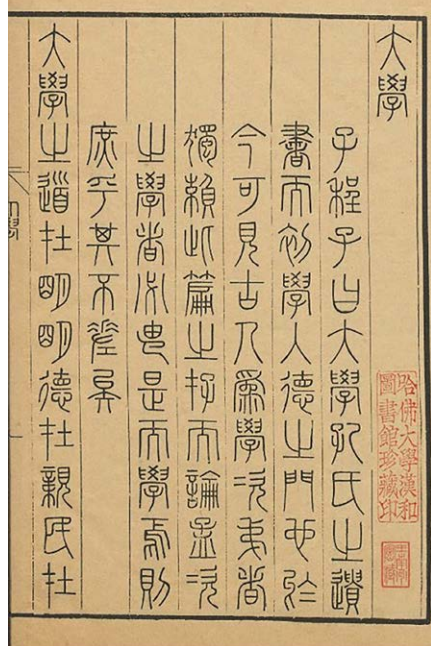 大學
子程子曰大學孔氏之遺
書而初學入德之門也於
今可見古人爲學次弟者
獨賴此篇之存而論孟次
之學者必由是而學焉則
庶乎其不差矣
大學之道在明明德在親民在
哈佛大學漢和
圖書館珍藏印